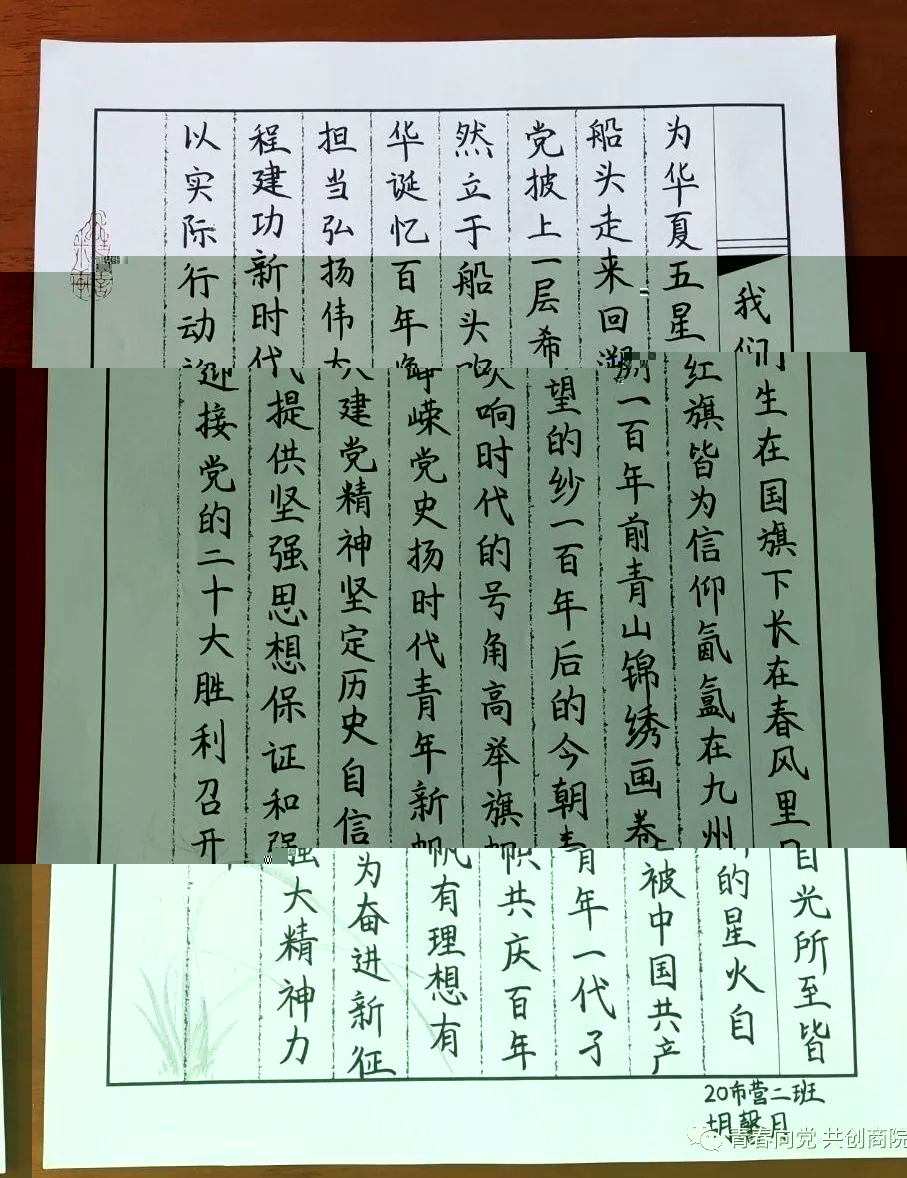 我们生在国旗下长在春风里目光所至皆
为华夏五星红旗皆为信仰氤氲在九州的星火自
船头走来回溯一百年前青山锦绣画卷被中国共产
党披上一层希望的纱一百年后的今朝青年一代子
然立于船头吹响时代的号角高举旗帜共庆百年
华诞忆百年峥嵘党史扬时代青年新帆有理想有
担当弘扬伟大建党精神坚定历史自信为奋进新征
程建功新时代提供坚强思想保证和强大精神力
以实际行动迎接党的二十大胜利召开
20市营二班
胡馨月
青春向党 共创商院